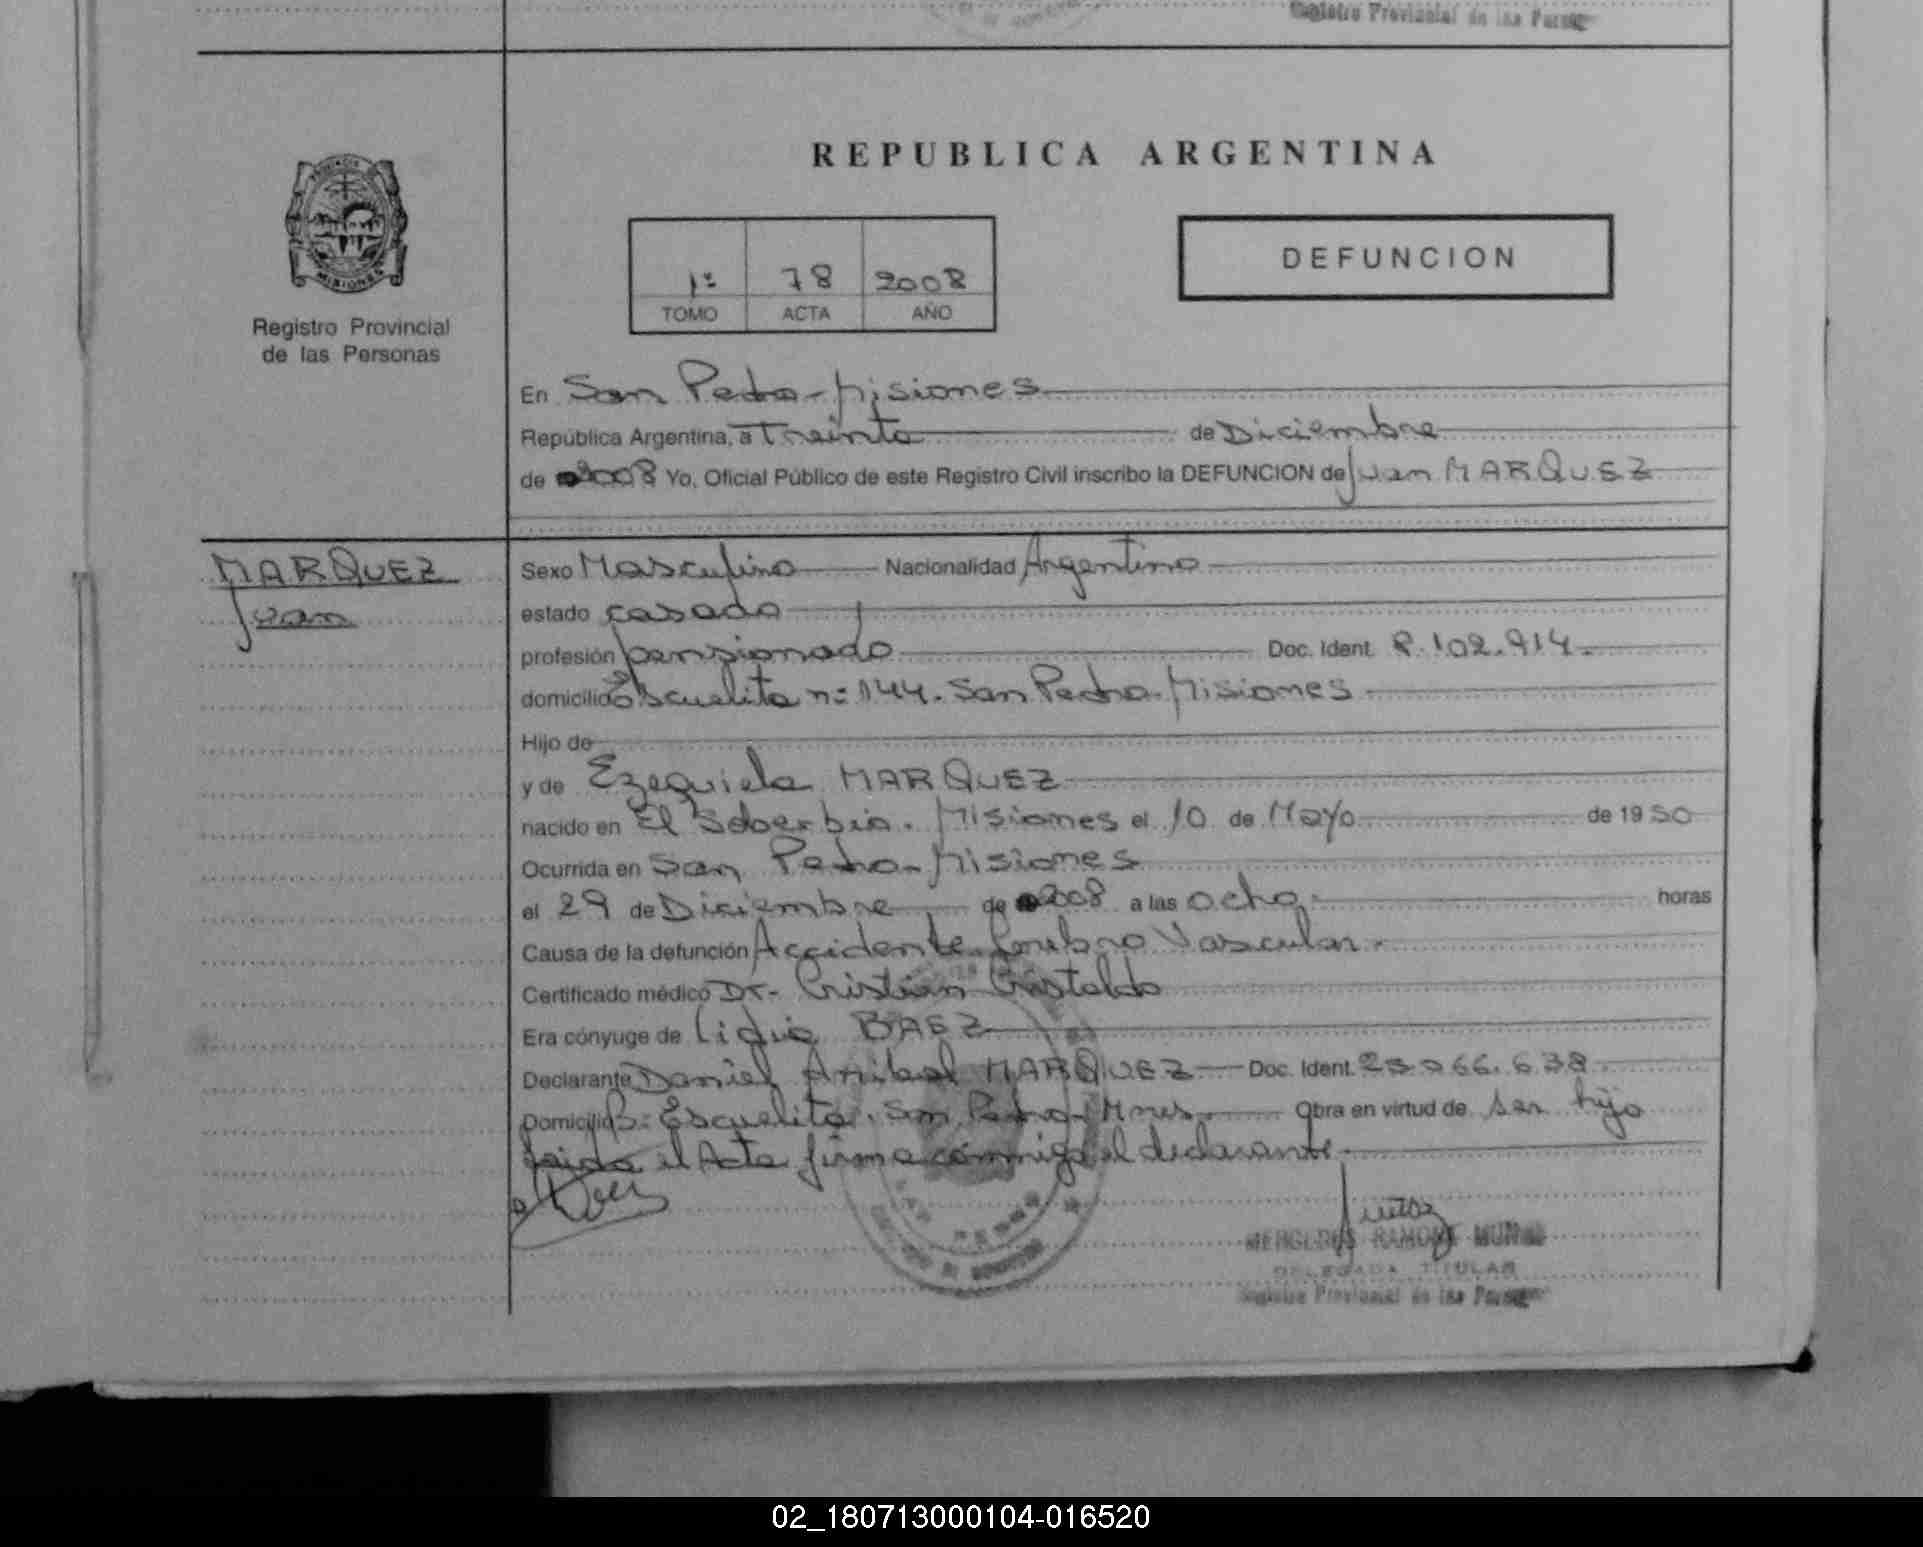 Registro Provincial de las Personas
REPUBLICA ARGENTINA
DEFUNCION
1º 78 2008
TOMO ACTA AÑO
MISIONES
Registro Provincial
de las Personas
En San Pedro - Misiones
República Argentina, a Treinta de Diciembre
de 2008 Yo, Oficial Público de este Registro Civil inscribo la DEFUNCION de Juan MARQUEZ
MARQUEZ
Juan
Sexo Masculino Nacionalidad Argentino
estado casado
profesión pensionado Doc. Ident. 8.102.914.
domicilio Escuelita nº 144. San Pedro. Misiones
Hijo de
y de Ezequiela MARQUEZ
nacido en El Soberbio. Misiones el 10 de Mayo de 1950
Ocurrida en San Pedro - Misiones
el 29 de Diciembre de 2008 a las ocho horas
Causa de la defunción Accidente Cerebro Vascular.
Certificado médico Dr. Cristian Cristaldo
Era cónyuge de Lidia BAEZ
Declarante Daniel Anibal MARQUEZ Doc. Ident. 66.638
Domicilio Bº Escuelita. San Pedro - Mnes. Obra en virtud de ser hijo
leida el Acta firma conmigo el declarante
MERCEDES RAMONA
DELEGADA TITULAR
Registro Provincial de las Personas
02_180713000104-016520